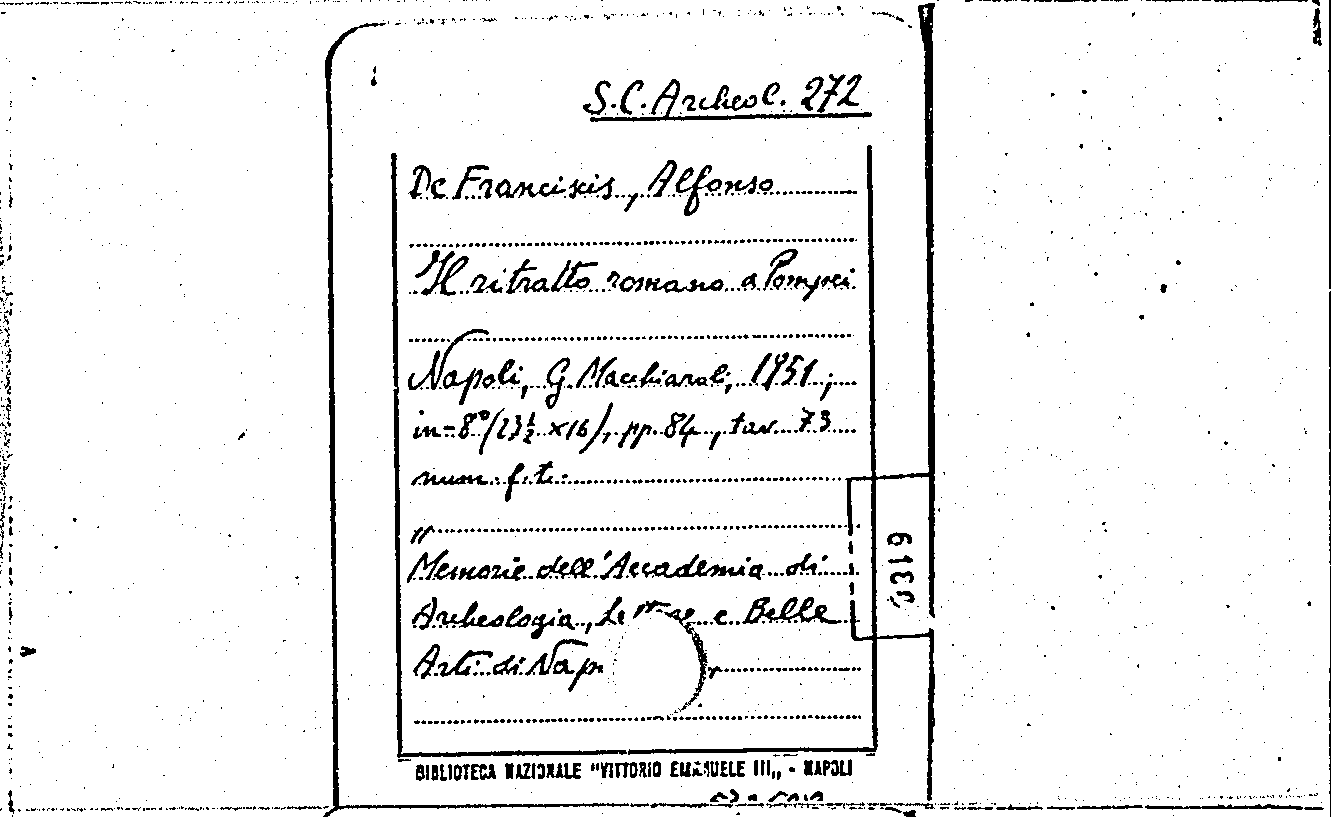 S.C. Archeol. 272
De Franciscis, Alfonso
Il ritratto romano a Pompei
Napoli, G. Macchiaroli, 1951;
in-8° (23½ × 16), pp. 84, tav. 73
num. f. t.
"
Memorie dell'Accademia di
Archeologia, e Belle
Arti di
BIBLIOTECA NAZIONALE "VITTORIO EMANUELE III„ - NAPOLI